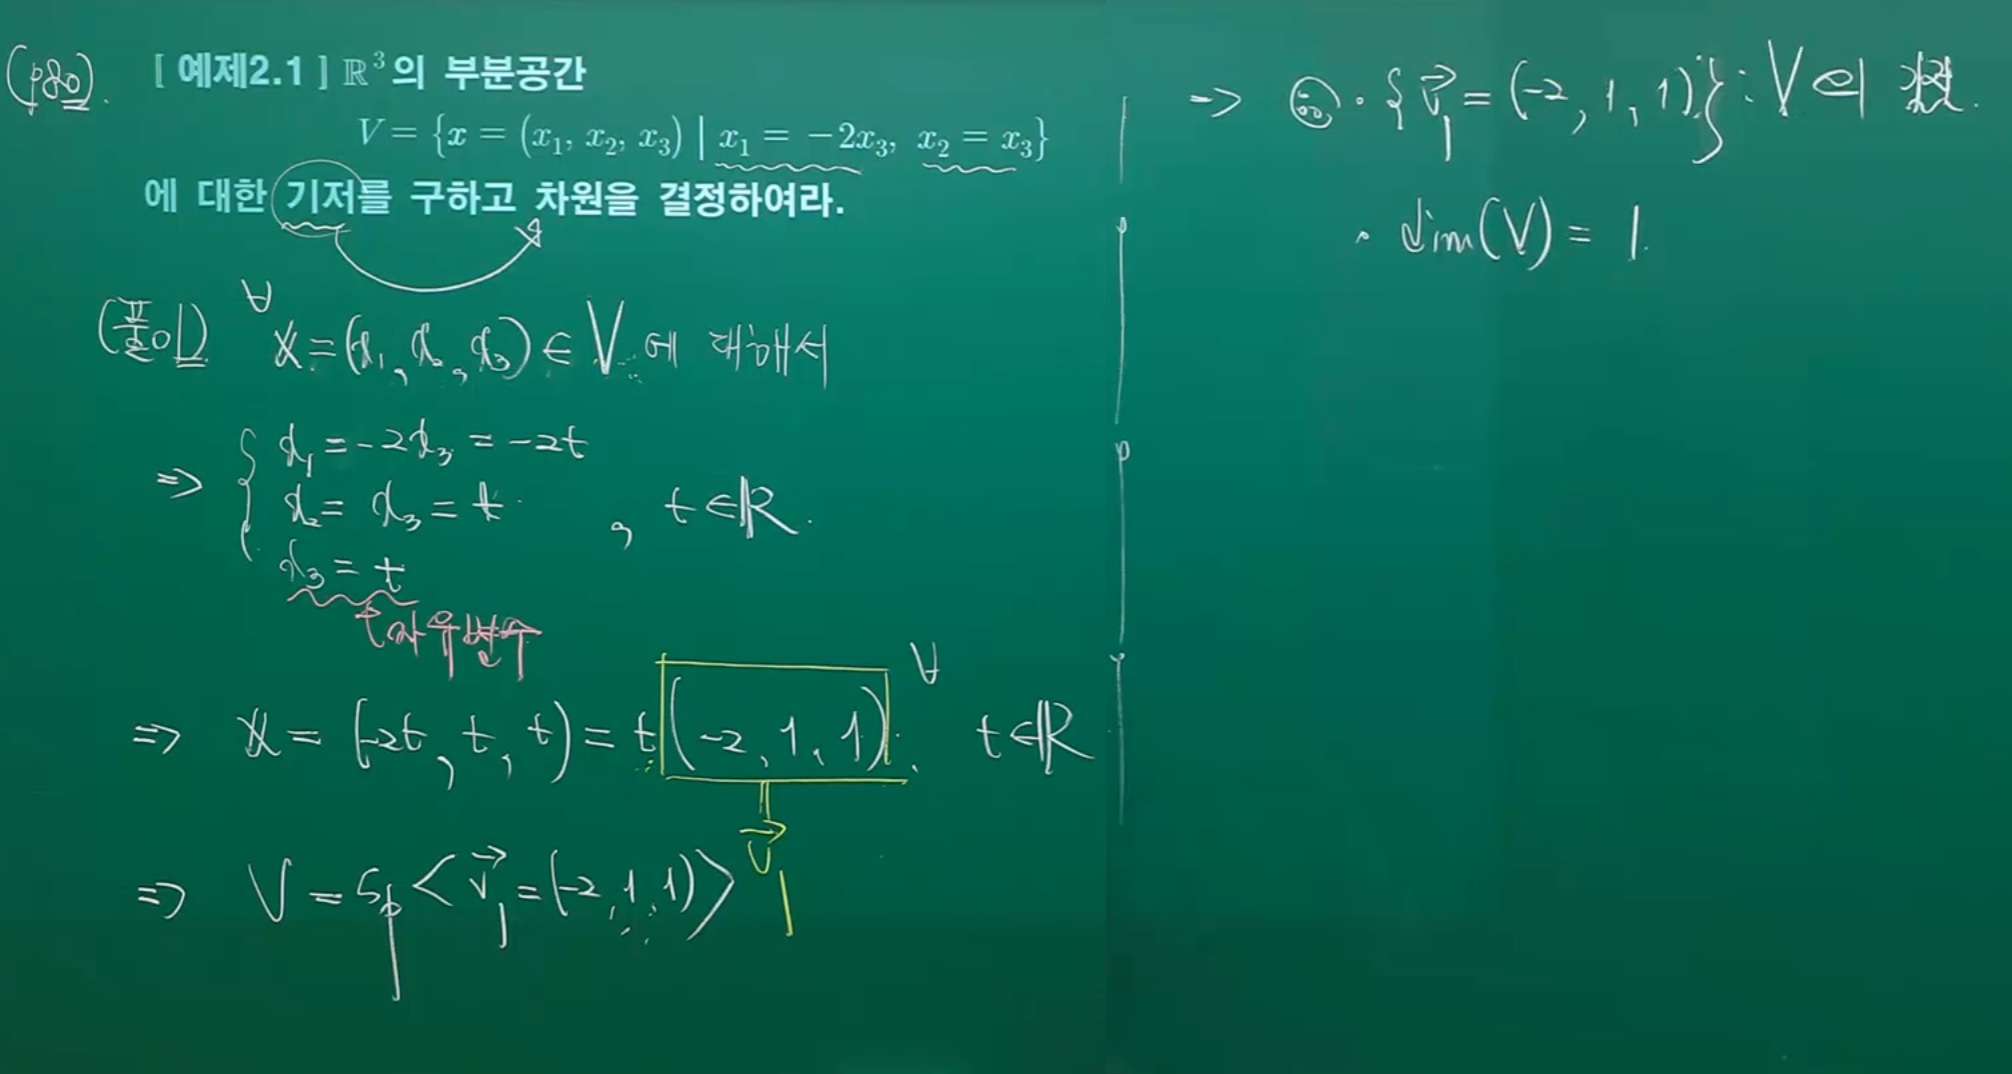 (p80).
[ 예제2.1 ] ℝ³의 부분공간
V = {x = (x₁, x₂, x₃) | x₁ = −2x₃, x₂ = x₃}
에 대한 기저를 구하고 차원을 결정하여라.
(풀이) ∀x = (x₁, x₂, x₃) ∈ V에 대해서
⇒ { x₁ = −2x₃ = −2t
x₂ = x₃ = t , t ∈ ℝ.
x₃ = t
자유변수
⇒ x = (−2t, t, t) = t(−2, 1, 1). ∀t ∈ ℝ
v⃗₁
⇒ V = Sp<v⃗₁ = (−2, 1, 1)>
⇒ · {v⃗₁ = (−2, 1, 1)} : V의 기저.
· dim(V) = 1.